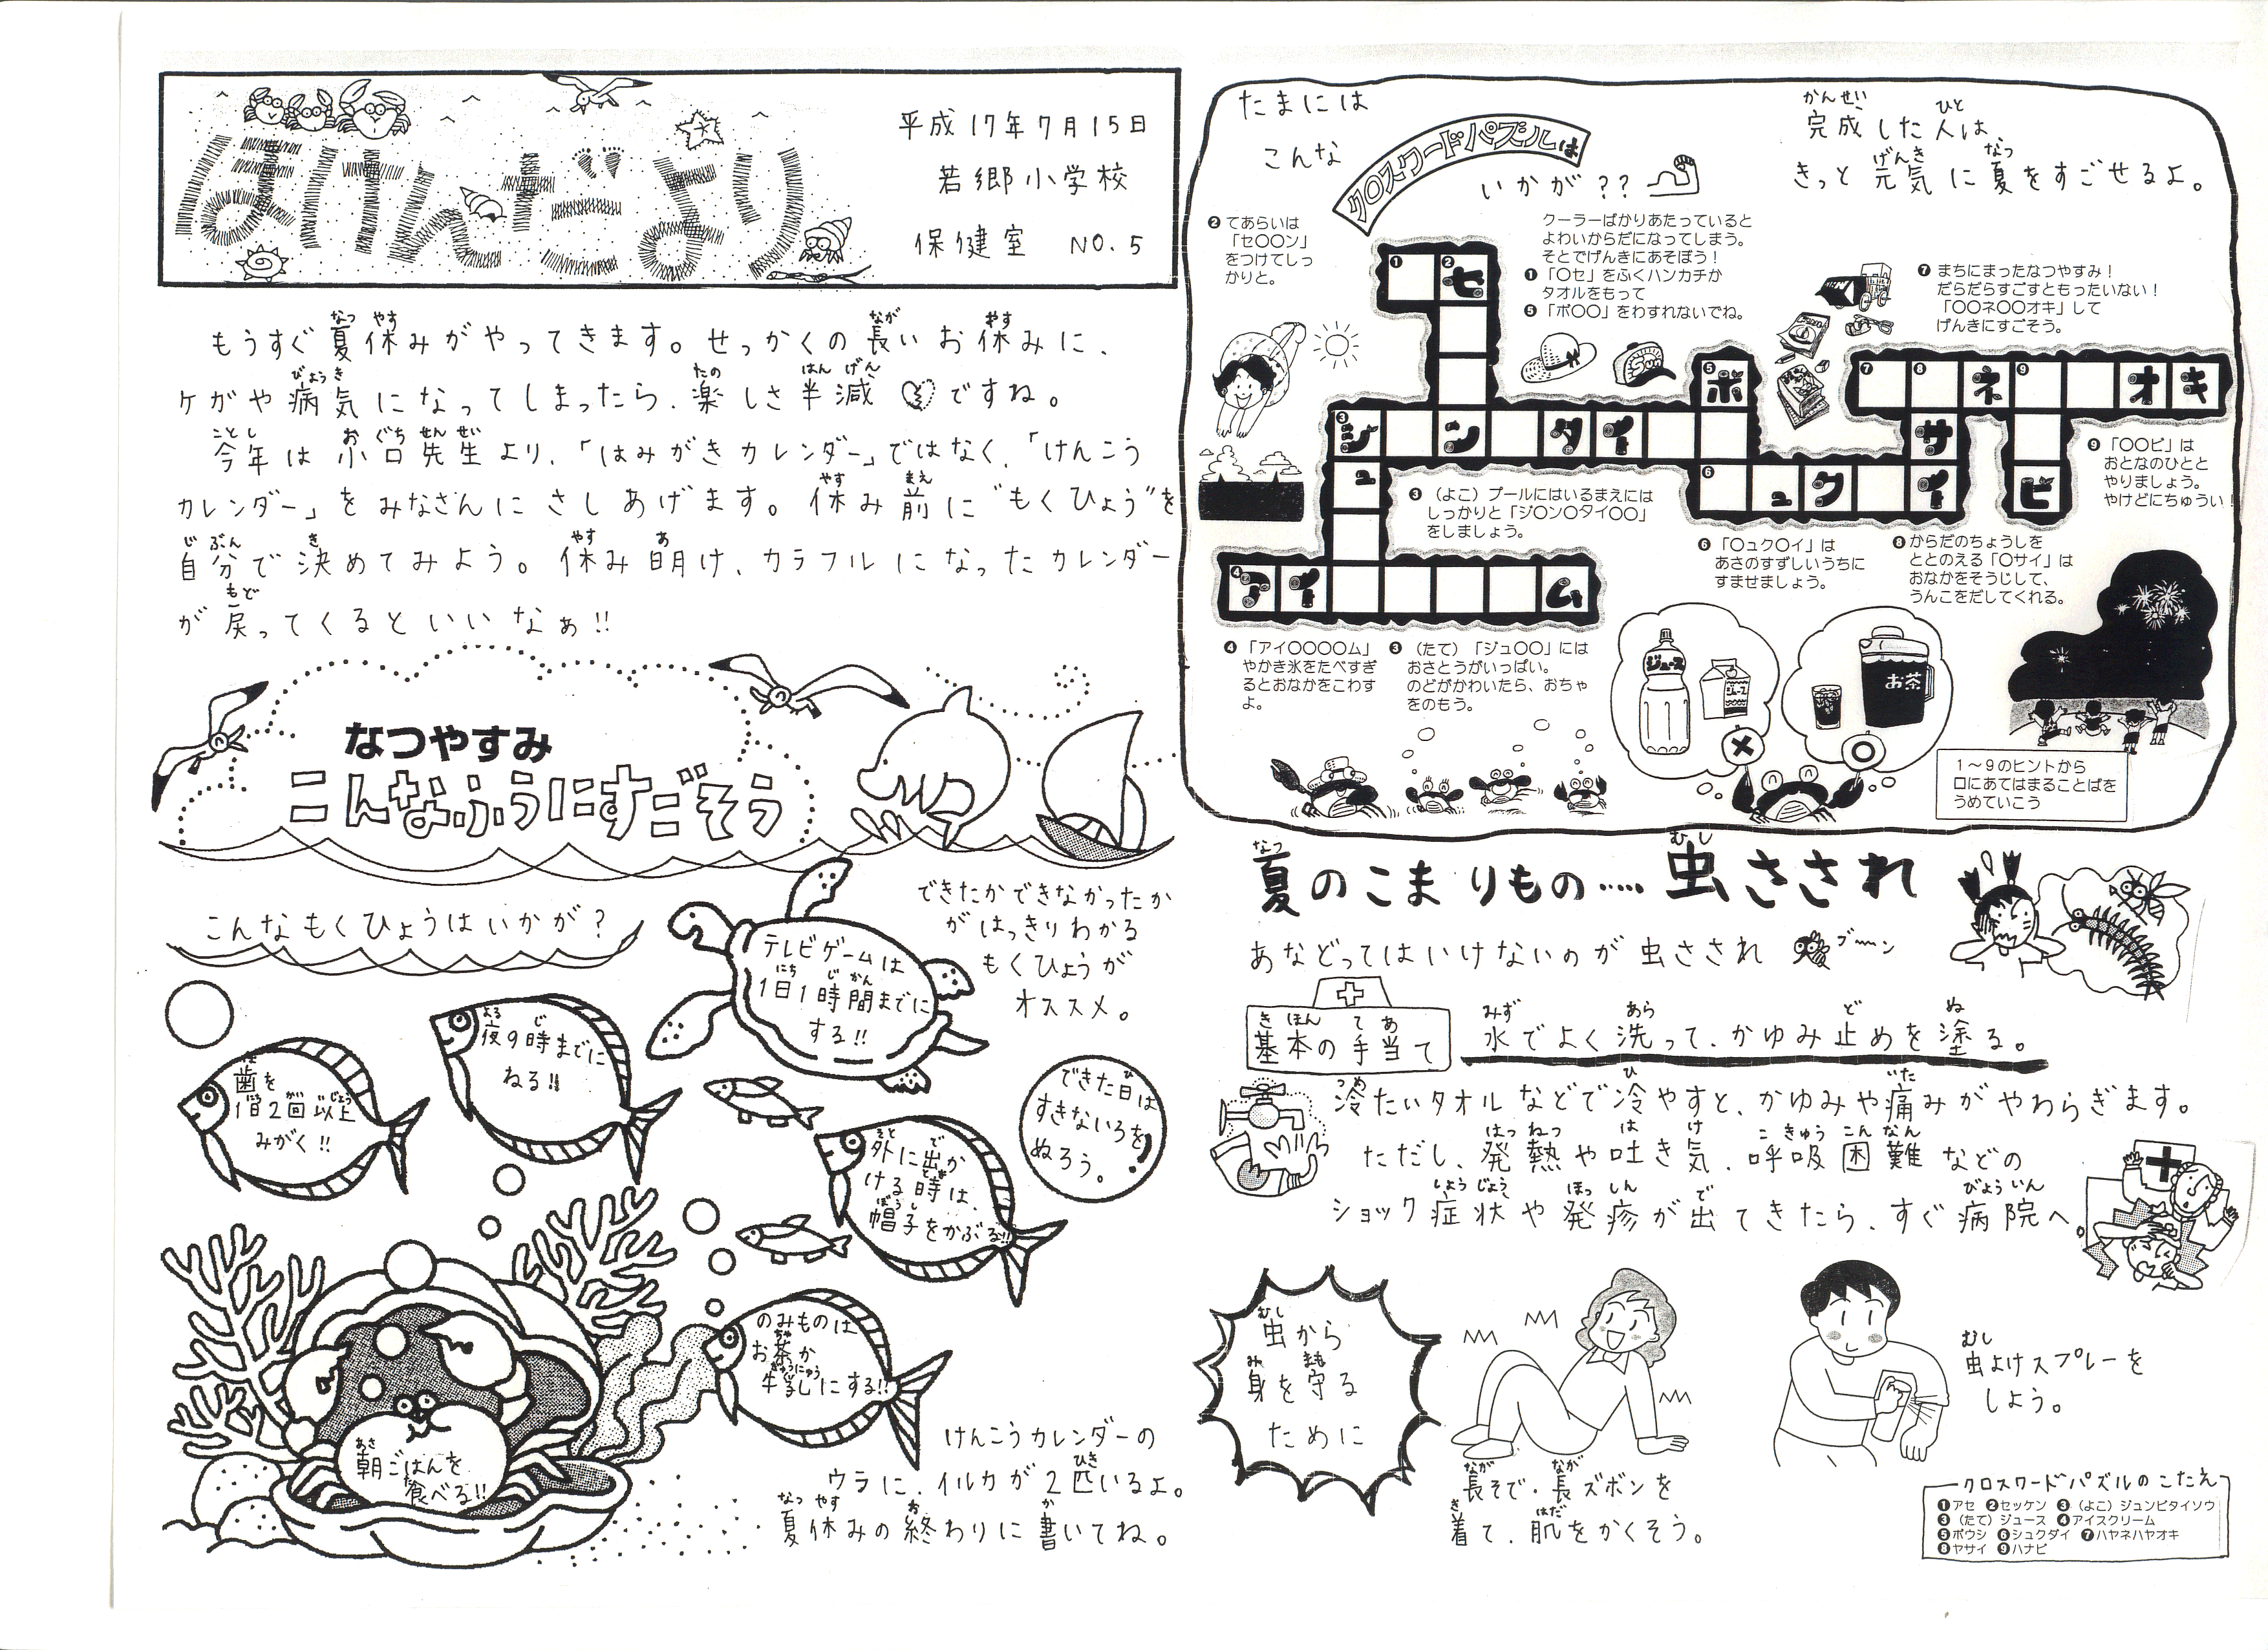 ほけんだより
平成17年7月15日
若郷小学校
保健室 NO.5
もうすぐ夏休みがやってきます。せっかくの長いお休みに、
ケガや病気になってしまったら、楽しさ半減ですね。
今年は小口先生より、「はみがきカレンダー」ではなく、「けんこう
カレンダー」をみなさんにさしあげます。休み前に"もくひょう"を
自分で決めてみよう。休み明け、カラフルになったカレンダー
が戻ってくるといいなぁ!!
なつやすみ
こんなふうにすごそう
こんなもくひょうはいかが?
できたかできなかったか
がはっきりわかる
もくひょうが
オススメ。
テレビゲームは
1日1時間までに
する!!
夜9時までに
ねる!!
歯を
1日2回以上
みがく!!
できた日は
すきないろを
ぬろう。
外に出か
ける時は、
帽子をかぶる!!
のみものは
お茶か
牛乳にする!!
朝ごはんを
食べる!!
けんこうカレンダーの
ウラに、イルカが2匹いるよ。
夏休みの終わりに書いてね。
たまには
こんな
クロスワードパズルは
いかが??
完成した人は、
きっと元気に夏をすごせるよ。
❷てあらいは
「セ〇〇ン」
をつけてしっ
かりと。
クーラーばかりあたっていると
よわいからだになってしまう。
そとでげんきにあそぼう!
❶「〇セ」をふくハンカチか
タオルをもって
❺「ボ〇〇」をわすれないでね。
❼まちにまったなつやすみ!
だらだらすごすともったいない!
「〇〇ネ〇〇オキ」して
げんきにすごそう。
❶ ❷セ
❺ボ
❼ ❽ ネ ❾ オ キ
❸ジ ン タ イ
サ
ュ
❻ ュ ク イ
ビ
❹ア イ ム
❾「〇〇ビ」は
おとなのひとと
やりましょう。
やけどにちゅうい!
❸(よこ)プールにはいるまえには
しっかりと「ジ〇ン〇タイ〇〇」
をしましょう。
❻「〇ュク〇イ」は
あさのすずしいうちに
すませましょう。
❽からだのちょうしを
ととのえる「〇サイ」は
おなかをそうじして、
うんこをだしてくれる。
❹「アイ〇〇〇〇ム」
やかき氷をたべすぎ
るとおなかをこわす
よ。
❸(たて)「ジュ〇〇」には
おさとうがいっぱい。
のどがかわいたら、おちゃ
をのもう。
ジュース
ジュース
お茶
1～9のヒントから
口にあてはまることばを
うめていこう
夏のこまりもの…‥虫さされ
あなどってはいけないのが虫さされ ブーン
基本の手当て
水でよく洗って、かゆみ止めを塗る。
冷たいタオルなどで冷やすと、かゆみや痛みがやわらぎます。
ただし、発熱や吐き気、呼吸困難などの
ショック症状や発疹が出てきたら、すぐ病院へ。
虫から
身を守る
ために
長そで・長ズボンを
着て、肌をかくそう。
虫よけスプレーを
しよう。
クロスワードパズルのこたえ
❶アセ ❷セッケン ❸(よこ)ジュンビタイソウ
❸(たて)ジュース ❹アイスクリーム
❺ボウシ ❻シュクダイ ❼ハヤネハヤオキ
❽ヤサイ ❾ハナビ